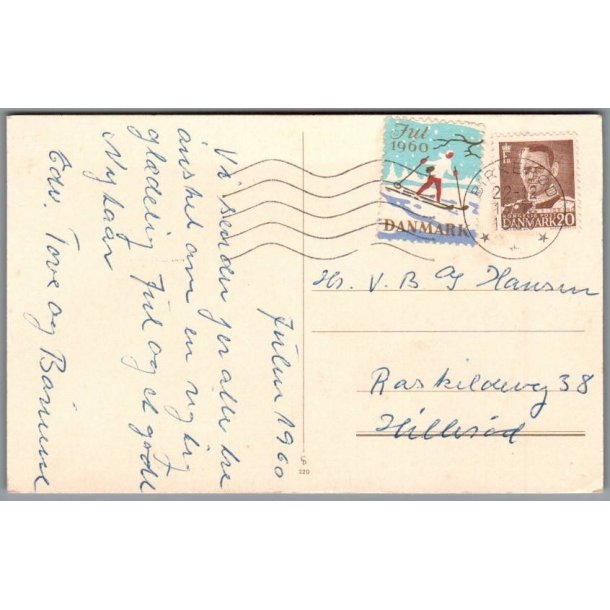 Julen 1960
Vi sender jer alle tre
ønsket om en rigtig
glædelig Jul og et godt
Nytaar
Edv. Tove og Børnene
Jul
1960
DANMARK
BIRKERØD
22-12
DANMARK 20
Hr. V. B Hansen
Roskildevej 38
Hillerød
220